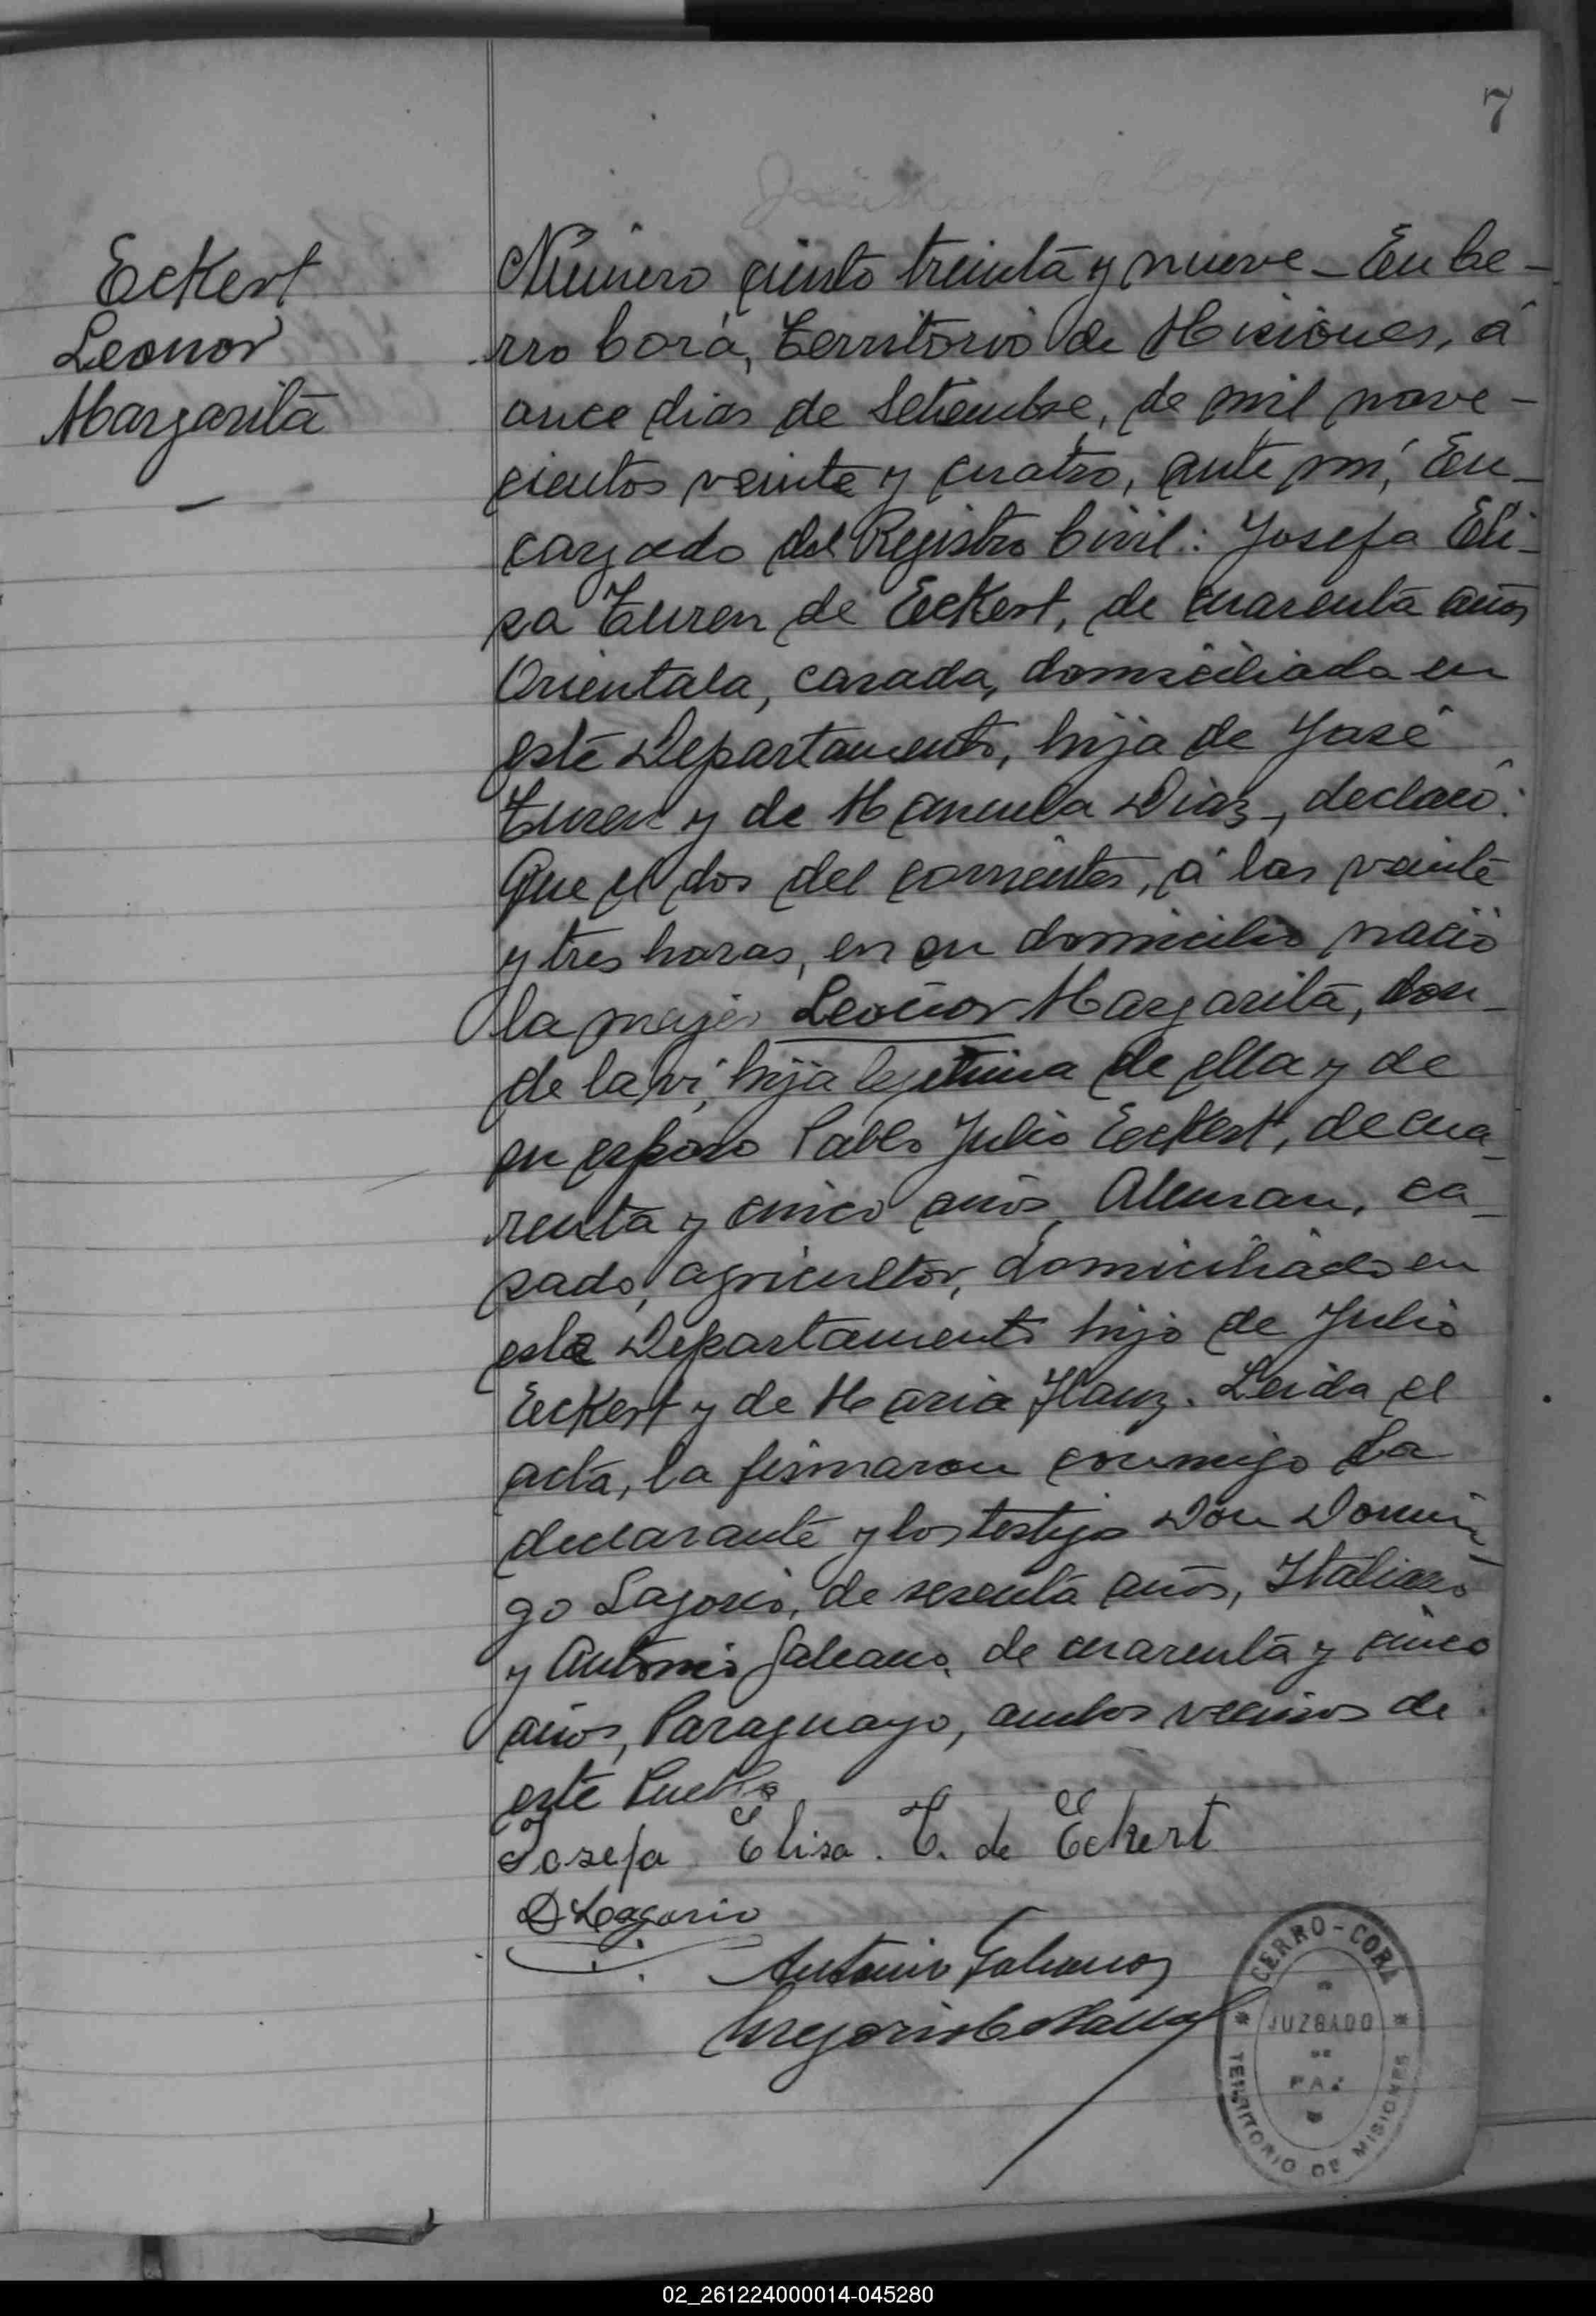 7
Eckert
Leonor
Margarita
Número ciento treinta y nueve - En Ce-
rro Corá, Territorio de Misiones, á
once dias de Setiembre, de mil nove-
cientos veinte y cuatro, ante mí, En-
cargado del Registro Civil: Josefa Eli-
sa Turen de Eckert, de cuarenta años
Orientala, casada, domiciliada en
este Departamento, hija de José
Turen y de Manuela Diaz, declaró:
Que el dos del corrientes, á las veinte
y tres horas, en su domicilio nació
la mujer Leonor Margarita, don-
de la vi, hija legitima de ella y de
su esposo Pablo Julio Eckert, de cua-
renta y cinco años, Aleman, ca-
sado, agricultor, domiciliado en
este Departamento hijo de Julio
Eckert y de Maria Hanz. Leida el
acta, la firmaron conmigo la
declarante y los testigos Don Domin-
go Lagorio, de sesenta años, Italiano
y Antonio Galeano, de cuarenta y cinco
años, Paraguayo, ambos vecinos de
este Pueblo
Josefa Elisa. T. de Eckert
D Lagorio
Antonio Galeano
Gregorio
CERRO-CORA
JUZGADO
DE
PAZ
TERRITORIO DE MISIONES
02_261224000014-045280